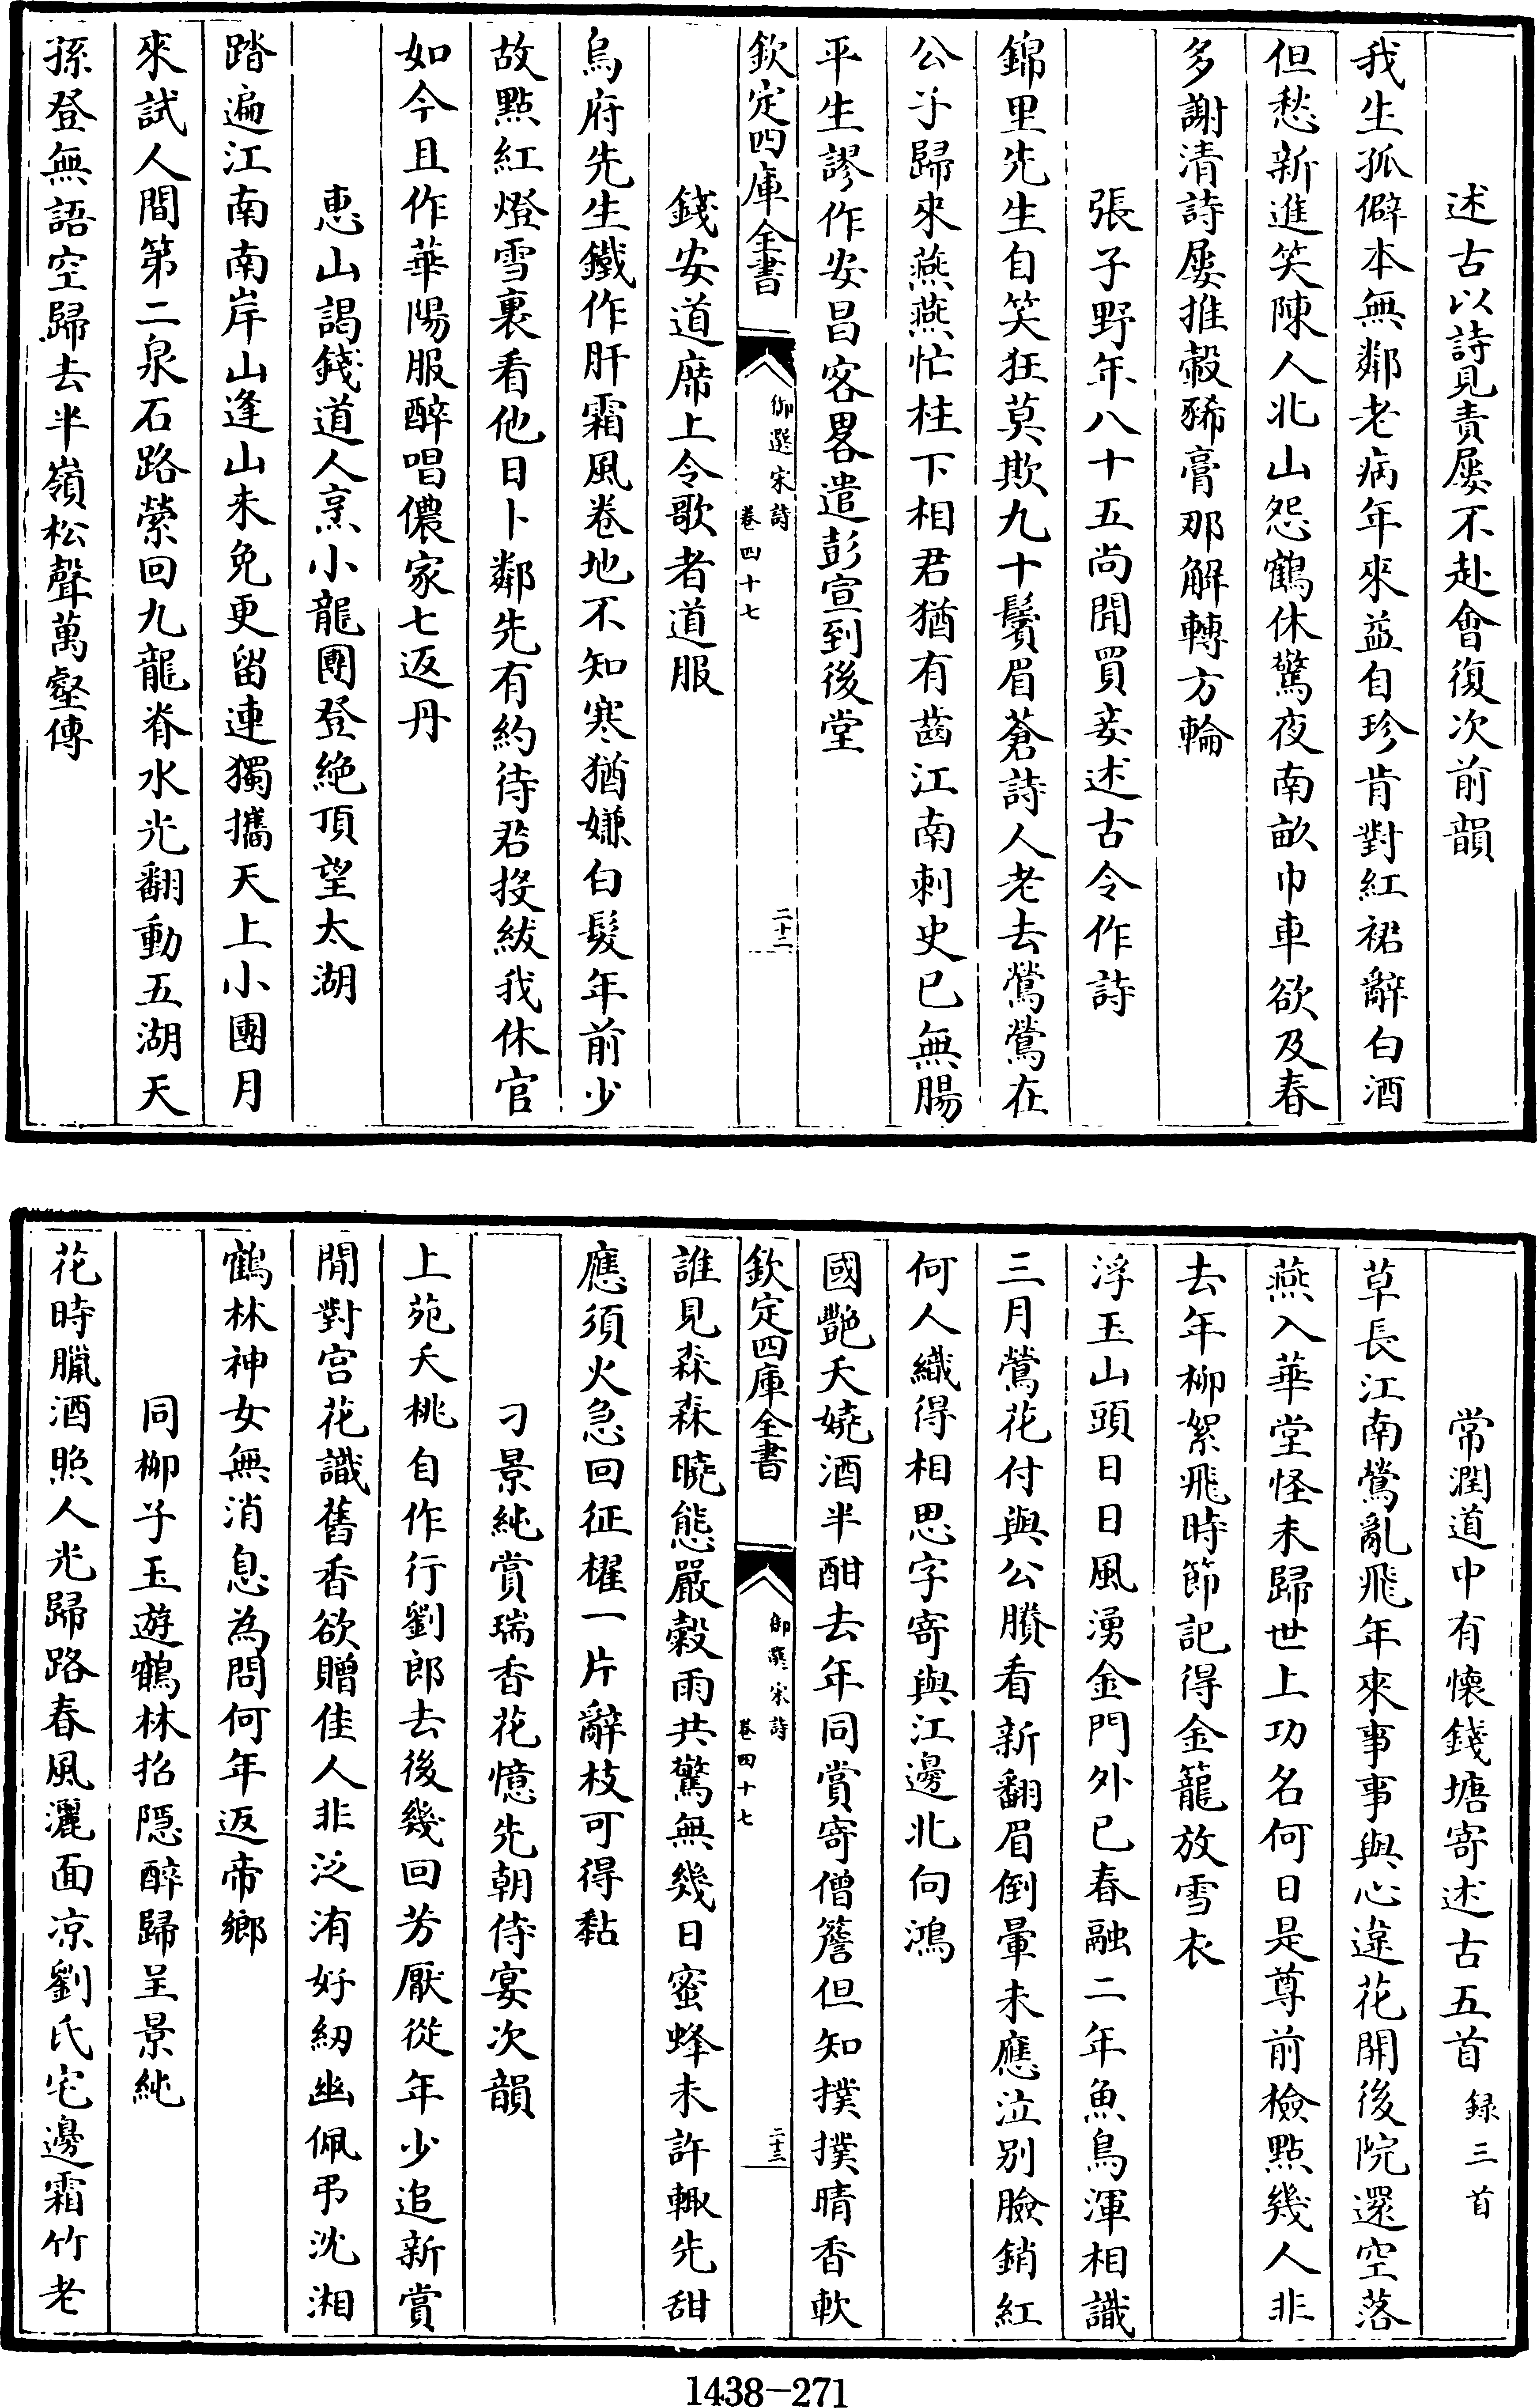 述古以詩見責屢不赴會復次前韻
我生孤僻本無鄰老病年來益自珍肯對紅裙辭白酒
但愁新進笑陳人北山怨鶴休驚夜南畝巾車欲及春
多謝清詩屢推轂豨膏那解轉方輪
張子野年八十五尚聞買妾述古令作詩
錦里先生自笑狂莫欺九十鬢眉蒼詩人老去鶯鶯在
公子歸來燕燕忙柱下相君猶有齒江南刺史已無腸
平生謬作安昌客畧遣彭宣到後堂
欽定四庫全書
御選宋詩
卷四十七
二十二
錢安道席上令歌者道服
烏府先生鐵作肝霜風卷地不知寒猶嫌白髮年前少
故點紅燈雪裏看他日卜鄰先有約待君投紱我休官
如今且作華陽服醉唱儂家七返丹
惠山謁錢道人烹小龍團登絶頂望太湖
踏遍江南南岸山逢山未免更留連獨攜天上小團月
來試人間第二泉石路縈回九龍脊水光翻動五湖天
孫登無語空歸去半嶺松聲萬壑傳
常潤道中有懷錢塘寄述古五首 録三首
草長江南鶯亂飛年來事事與心違花開後院還空落
燕入華堂怪未歸世上功名何日是尊前檢點幾人非
去年柳絮飛時節記得金籠放雪衣
浮玉山頭日日風湧金門外已春融二年魚鳥渾相識
三月鶯花付與公賸看新翻眉倒暈未應泣别臉銷紅
何人織得相思字寄與江邊北向鴻
國艷夭嬈酒半酣去年同賞寄僧簷但知撲撲晴香軟
欽定四庫全書
御選宋詩
卷四十七
二十三
誰見森森曉態嚴穀雨共驚無幾日蜜蜂未許輒先甜
應須火急回征櫂一片辭枝可得黏
刁景純賞瑞香花憶先朝侍宴次韻
上苑夭桃自作行劉郎去後幾回芳厭從年少追新賞
閒對宫花識舊香欲贈佳人非泛洧好紉幽佩弔沈湘
鶴林神女無消息為問何年返帝鄉
同柳子玉遊鶴林招隱醉歸呈景純
花時臘酒照人光歸路春風灑面凉劉氏宅邊霜竹老
1438-271